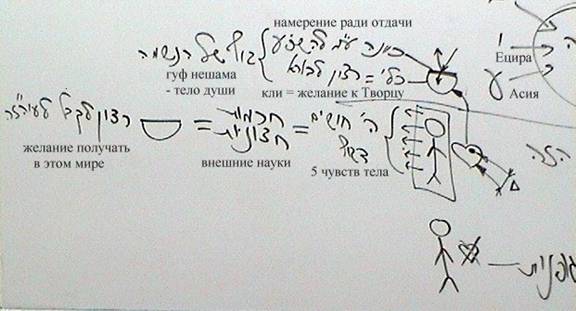 намерение ради отдачи
כוונה ע"מ להשפיע
גוף של הנשמה
כלי = רצון לבורא
гуф нешама
- тело души
кли = желание к Творцу
Ецира
Асия
רצון לקבל
=
חכמות
חצוניות
=
ה' חושים
желание получать
в этом мире
внешние науки
5 чувств тела